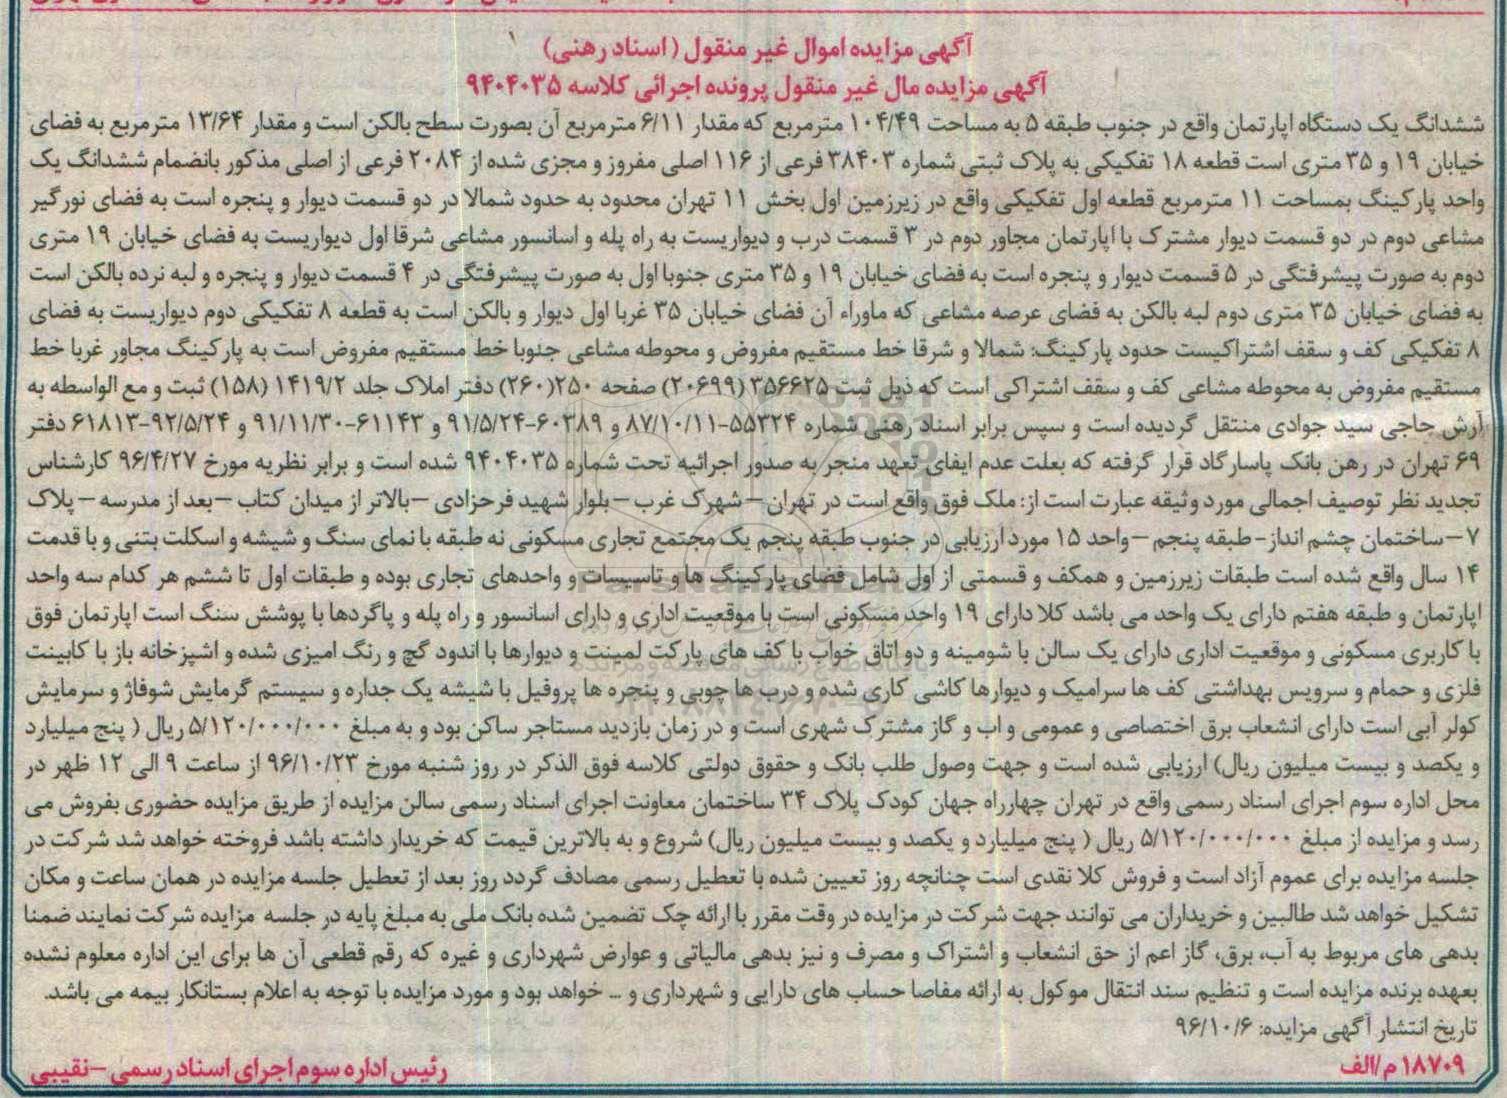 آگهی مزایده اموال غیر منقول (اسناد رهنی)
آگهی مزایده مال غیر منقول پرونده اجرائی کلاسه ۹۴۰۴۰۳۵
ششدانگ یک دستگاه اپارتمان واقع در جنوب طبقه ۵ به مساحت ۱۰۴/۴۹ مترمربع که مقدار ۶/۱۱ مترمربع آن بصورت سطح بالکن است و مقدار ۱۳/۶۴ مترمربع به فضای
خیابان ۱۹ و ۳۵ متری است قطعه ۱۸ تفکیکی به پلاک ثبتی شماره ۳۸۴۰۳ فرعی از ۱۱۶ اصلی مفروز و مجزی شده از ۲۰۸۴ فرعی از اصلی مذکور بانضمام ششدانگ یک
واحد پارکینگ بمساحت ۱۱ مترمربع قطعه اول تفکیکی واقع در زیرزمین اول بخش ۱۱ تهران محدود به حدود شمالا در دو قسمت دیوار و پنجره است به فضای نورگیر
مشاعی دوم در دو قسمت دیوار مشترک با اپارتمان مجاور دوم در ۳ قسمت درب و دیواریست به راه پله و اسانسور مشاعی شرقا اول دیواریست به فضای خیابان ۱۹ متری
دوم به صورت پیشرفتگی در ۵ قسمت دیوار و پنجره است به فضای خیابان ۱۹ و ۳۵ متری جنوبا اول به صورت پیشرفتگی در ۴ قسمت دیوار و پنجره و لبه نرده بالکن است
به فضای خیابان ۳۵ متری دوم لبه بالکن به فضای عرصه مشاعی که ماوراء آن فضای خیابان ۳۵ غربا اول دیوار و بالکن است به قطعه ۸ تفکیکی دوم دیواریست به فضای
۸ تفکیکی کف و سقف اشتراکیست حدود پارکینگ: شمالا و شرقا خط مستقیم مفروض و محوطه مشاعی جنوبا خط مستقیم مفروض است به پارکینگ مجاور غربا خط
مستقیم مفروض به محوطه مشاعی کف و سقف اشتراکی است که ذیل ثبت ۳۵۶۶۲۵ (۲۰۶۹۹) صفحه ۲۵۰(۲۶۰) دفتر املاک جلد ۱۴۱۹/۲ (۱۵۸) ثبت و مع الواسطه به
آرش حاجی سید جوادی منتقل گردیده است و سپس برابر اسناد رهنی شماره ۵۵۳۲۴-۸۷/۱۰/۱۱ و ۶۰۳۸۹-۹۱/۵/۲۴ و ۶۱۱۴۳-۹۱/۱۱/۳۰ و ۶۱۸۱۳-۹۲/۵/۲۴ دفتر
۶۹ تهران در رهن بانک پاسارگاد قرار گرفته که بعلت عدم ایفای تعهد منجر به صدور اجرائیه تحت شماره ۹۴۰۴۰۳۵ شده است و برابر نظریه مورخ ۹۶/۴/۲۷ کارشناس
تجدید نظر توصیف اجمالی مورد وثیقه عبارت است از: ملک فوق واقع است در تهران – شهرک غرب – بلوار شهید فرحزادی – بالاتر از میدان کتاب – بعد از مدرسه – پلاک
۷ – ساختمان چشم انداز- طبقه پنجم – واحد ۱۵ مورد ارزیابی در جنوب طبقه پنجم یک مجتمع تجاری مسکونی نه طبقه با نمای سنگ و شیشه و اسکلت بتنی و با قدمت
۱۴ سال واقع شده است طبقات زیرزمین و همکف و قسمتی از اول شامل فضای پارکینگ ها و تاسیسات و واحدهای تجاری بوده و طبقات اول تا ششم هر کدام سه واحد
اپارتمان و طبقه هفتم دارای یک واحد می باشد کلا دارای ۱۹ واحد مسکونی است با موقعیت اداری و دارای اسانسور و راه پله و پاگردها با پوشش سنگ است اپارتمان فوق
با کاربری مسکونی و موقعیت اداری دارای یک سالن با شومینه و دو اتاق خواب با کف های پارکت لمینت و دیوارها با اندود گچ و رنگ امیزی شده و اشپزخانه باز با کابینت
فلزی و حمام و سرویس بهداشتی کف ها سرامیک و دیوارها کاشی کاری شده و درب ها چوبی و پنجره ها پروفیل با شیشه یک جداره و سیستم گرمایش شوفاژ و سرمایش
کولر آبی است دارای انشعاب برق اختصاصی و عمومی و اب و گاز مشترک شهری است و در زمان بازدید مستاجر ساکن بود و به مبلغ ۵/۱۲۰/۰۰۰/۰۰۰ ریال ( پنج میلیارد
و یکصد و بیست میلیون ریال) ارزیابی شده است و جهت وصول طلب بانک و حقوق دولتی کلاسه فوق الذکر در روز شنبه مورخ ۹۶/۱۰/۲۳ از ساعت ۹ الی ۱۲ ظهر در
محل اداره سوم اجرای اسناد رسمی واقع در تهران چهارراه جهان کودک پلاک ۳۴ ساختمان معاونت اجرای اسناد رسمی سالن مزایده از طریق مزایده حضوری بفروش می
رسد و مزایده از مبلغ ۵/۱۲۰/۰۰۰/۰۰۰ ریال ( پنج میلیارد و یکصد و بیست میلیون ریال) شروع و به بالاترین قیمت که خریدار داشته باشد فروخته خواهد شد شرکت در
جلسه مزایده برای عموم آزاد است و فروش کلا نقدی است چنانچه روز تعیین شده با تعطیل رسمی مصادف گردد روز بعد از تعطیل جلسه مزایده در همان ساعت و مکان
تشکیل خواهد شد طالبین و خریداران می توانند جهت شرکت در مزایده در وقت مقرر با ارائه چک تضمین شده بانک ملی به مبلغ پایه در جلسه مزایده شرکت نمایند ضمنا
بدهی های مربوط به آب، برق، گاز اعم از حق انشعاب و اشتراک و مصرف و نیز بدهی مالیاتی و عوارض شهرداری و غیره که رقم قطعی آن ها برای این اداره معلوم نشده
بعهده برنده مزایده است و تنظیم سند انتقال موکول به ارائه مفاصا حساب های دارایی و شهرداری و ... خواهد بود و مورد مزایده با توجه به اعلام بستانکار بیمه می باشد.
تاریخ انتشار آگهی مزایده: ۹۶/۱۰/۶
۱۸۷۰۹ م/الف
رئیس اداره سوم اجرای اسناد رسمی – نقیبی